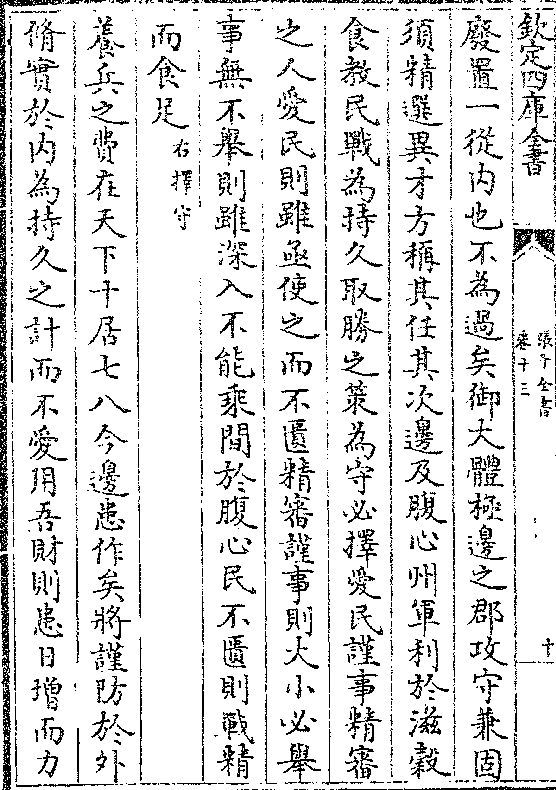 欽定四庫全書
張子全書
卷十三
十
廢置一從内也不為過矣御大體極邊之郡攻守兼固
須精選異才方稱其任其次邊及腹心州軍利於滋穀
食教民戰為持久取勝之策為守必擇愛民謹事精審
之人愛民則雖亟使之而不匱精審謹事則大小必舉
事無不舉則雖深入不能乘間於腹心民不匱則戰精
而食足右擇守
養兵之費在天下十居七八今邊患作矣將謹防於外
脩實於内為持久之計而不愛用吾財則患日增而力